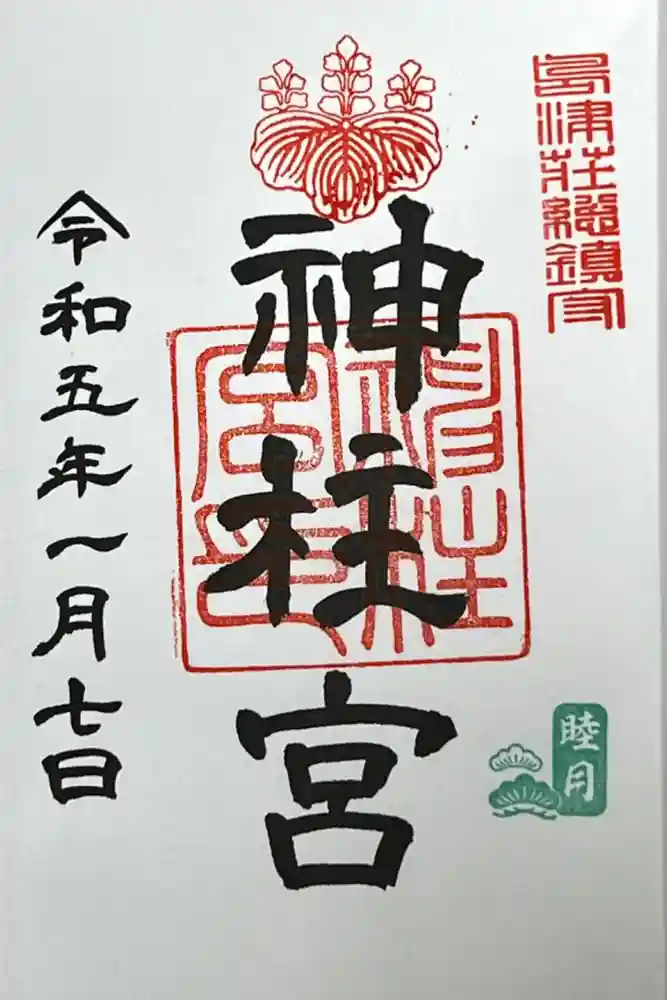 島津荘総鎮守
神柱宮
神柱宮印
睦月
令和五年一月七日